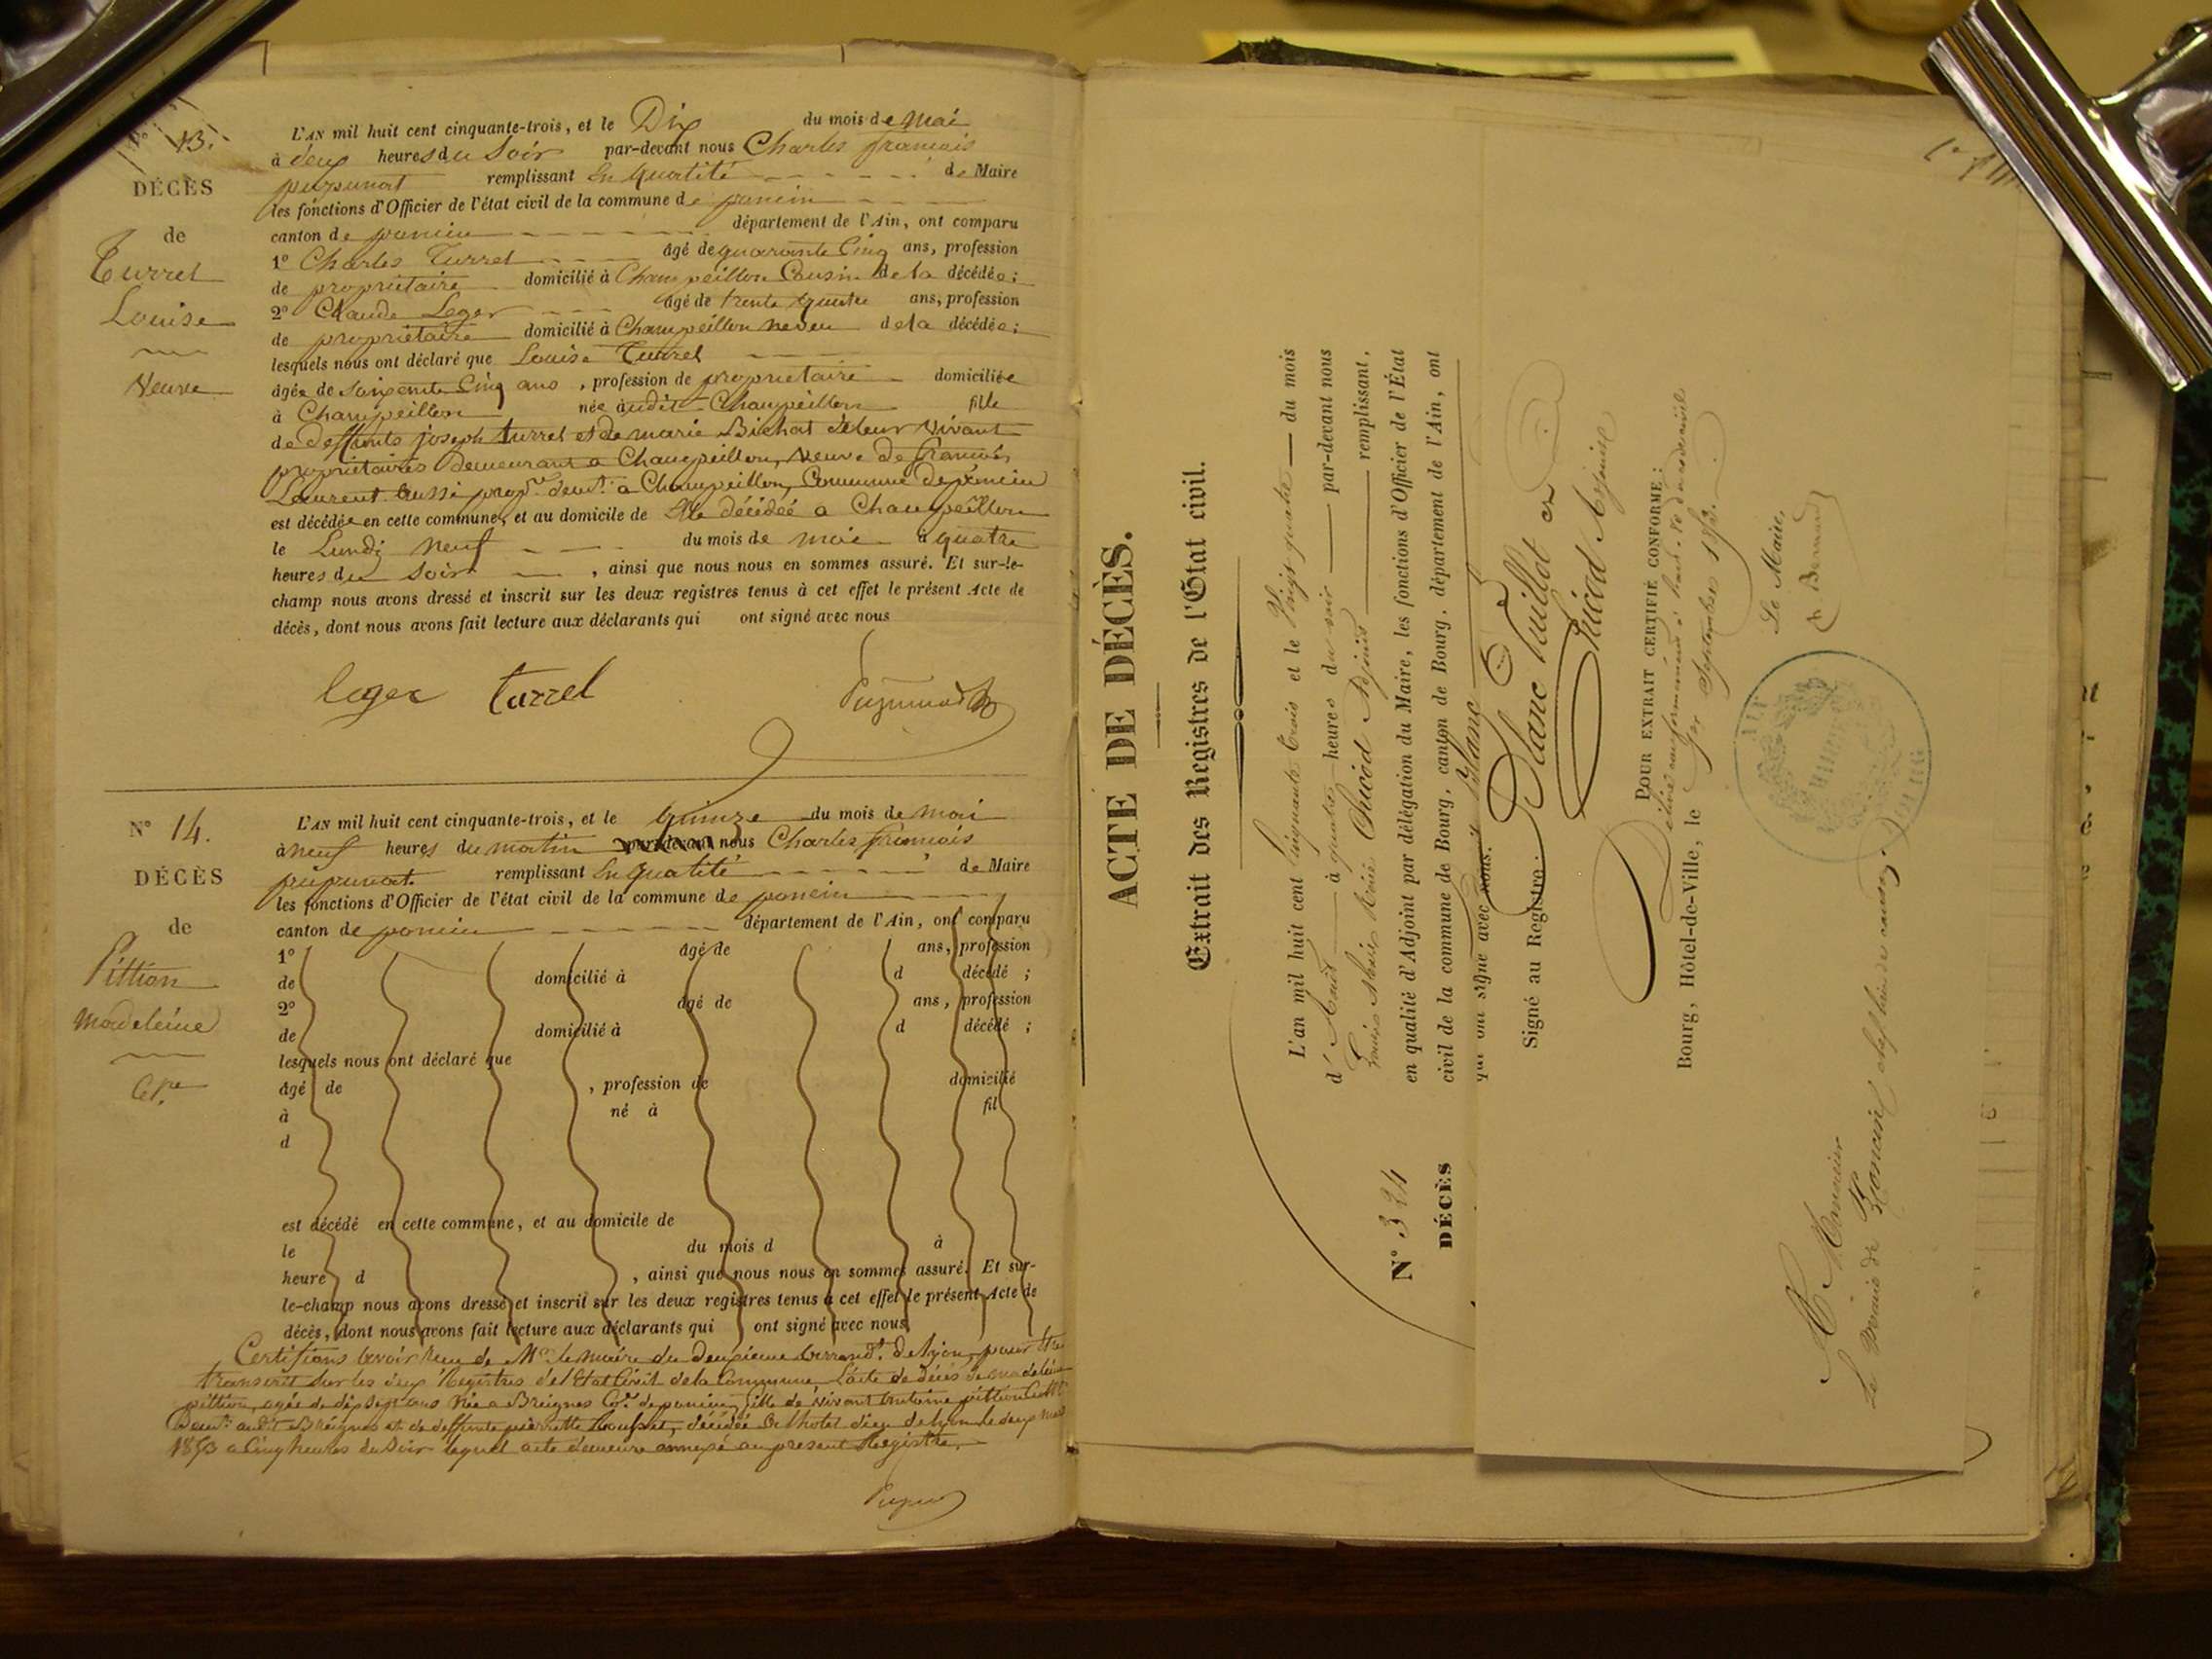 N° 13.
DÉCÈS
de
Turrel
Louise
Veuve
L'AN mil huit cent cinquante-trois, et le Dix du mois de mai
à deux heures du Soir par-devant nous Charles françois
puzunat remplissant En qualité de Maire
les fonctions d'Officier de l'état civil de la commune de poncin
canton de poncin département de l'Ain, ont comparu
1° Charles Turrel âgé de quarante Cinq ans, profession
de propriétaire domicilié à Champeillon Cousin de la décédée;
2° Claude Leger âgé de trente quatre ans, profession
de propriétaire domicilié à Champeillon neveu de la décédée;
lesquels nous ont déclaré que Louise Turrel
âgée de Soixante Cinq ans, profession de propriétaire domiciliée
à Champeillon née audit Champeillon fille
de Deffunts joseph turrel et de marie Bichat de leur Vivant
propriétaires Demeurant a Champeillon, Veuve De françois
Laurent aussi prop.re demt. a Champeillon, Commune de poncin
est décédée en cette commune, et au domicile de Elle décédée a Champeillon
le Lundi neuf du mois de mai à quatre
heures du Soir, ainsi que nous nous en sommes assuré. Et sur-le-
champ nous avons dressé et inscrit sur les deux registres tenus à cet effet le présent Acte de
décès, dont nous avons fait lecture aux déclarants qui ont signé avec nous
leger turrel
N° 14.
DÉCÈS
de
Pittion
Madeleine
L'AN mil huit cent cinquante-trois, et le quinze du mois de mai
à neuf heures du matin par-devant nous Charles françois
puzunat remplissant En qualité de Maire
les fonctions d'Officier de l'état civil de la commune de poncin
canton de poncin département de l'Ain, ont comparu
1° âgé de ans, profession
de domicilié à d décédé ;
2° âgé de ans, profession
de domicilié à d décédé ;
lesquels nous ont déclaré que
âgé de , profession de domicilié
à né à fil
d
est décédé en cette commune, et au domicile de
le du mois d à
heure d , ainsi que nous nous en sommes assuré. Et sur-
le-champ nous avons dressé et inscrit sur les deux registres tenus à cet effet le présent Acte de
décès, dont nous avons fait lecture aux déclarants qui ont signé avec nous
Certifions avoir Reçu de Mr le maire du Deuxieme arrondt. de lyon, pour être
transcrit Sur les deux Registres de l'Etat Civil de la Commune L'acte de Décés de madeleine
pittion, agée de dix Sept ans Née a Breignes Con. de poncin, fille de vivant antoine pittion
Demt. audit Breignes et de deffunte pierrette, décédée a l'hotel dieu de lyon le deux mai
1853 a Cinq heures du Soir lequel acte demeure annexé au present Registre.
ACTE DE DÉCÈS.
Extrait des Registres de l'État civil.
N° 324
DÉCÈS
L'an mil huit cent Cinquante trois et le Vingt quatre du mois
d'Août à quatre heures du soir par-devant nous
Louis Marie Chicod Adjoint remplissant,
en qualité d'Adjoint par délégation du Maire, les fonctions d'Officier de l'État
civil de la commune de Bourg, canton de Bourg, département de l'Ain, ont
qui ont signé avec nous. Blanc
Signé au Registre. Blanc Vuillot et
Chicod Adjoint
POUR EXTRAIT CERTIFIÉ CONFORME:
Bourg, Hôtel-de-Ville, le 1er Septembre 1853.
Le Maire,
A Monsieur
Le Maire de Poncin chef lieu de canton.